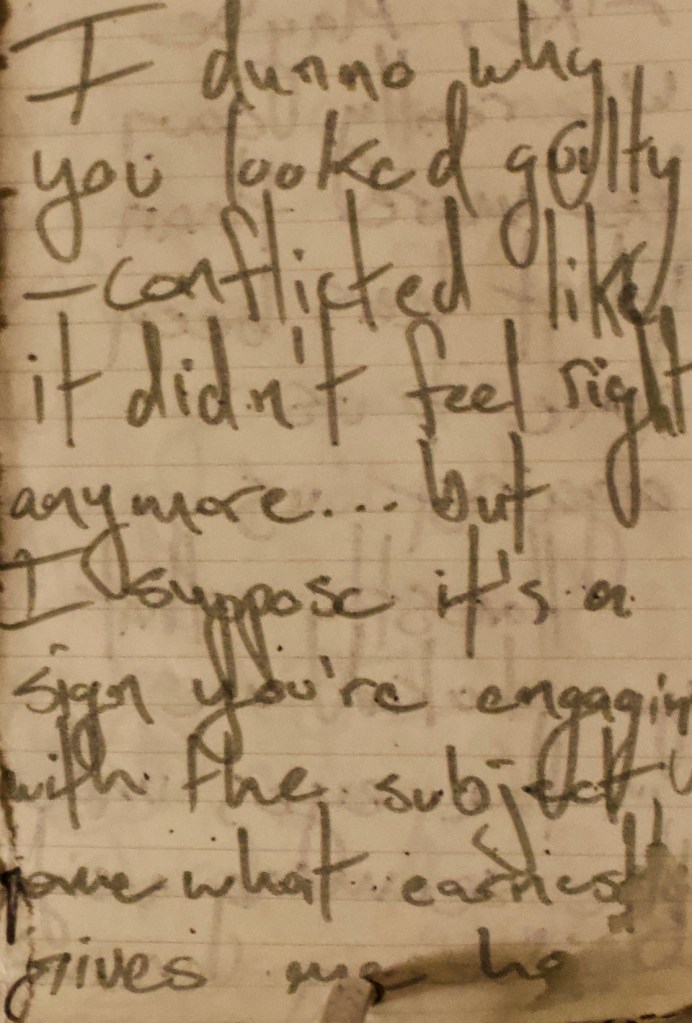 I dunno why
you looked guilty
– conflicted like
it didn't feel right
anymore... but
I suppose it's a
sign you're engagin
with the subject
some what earnestly
gives me ho